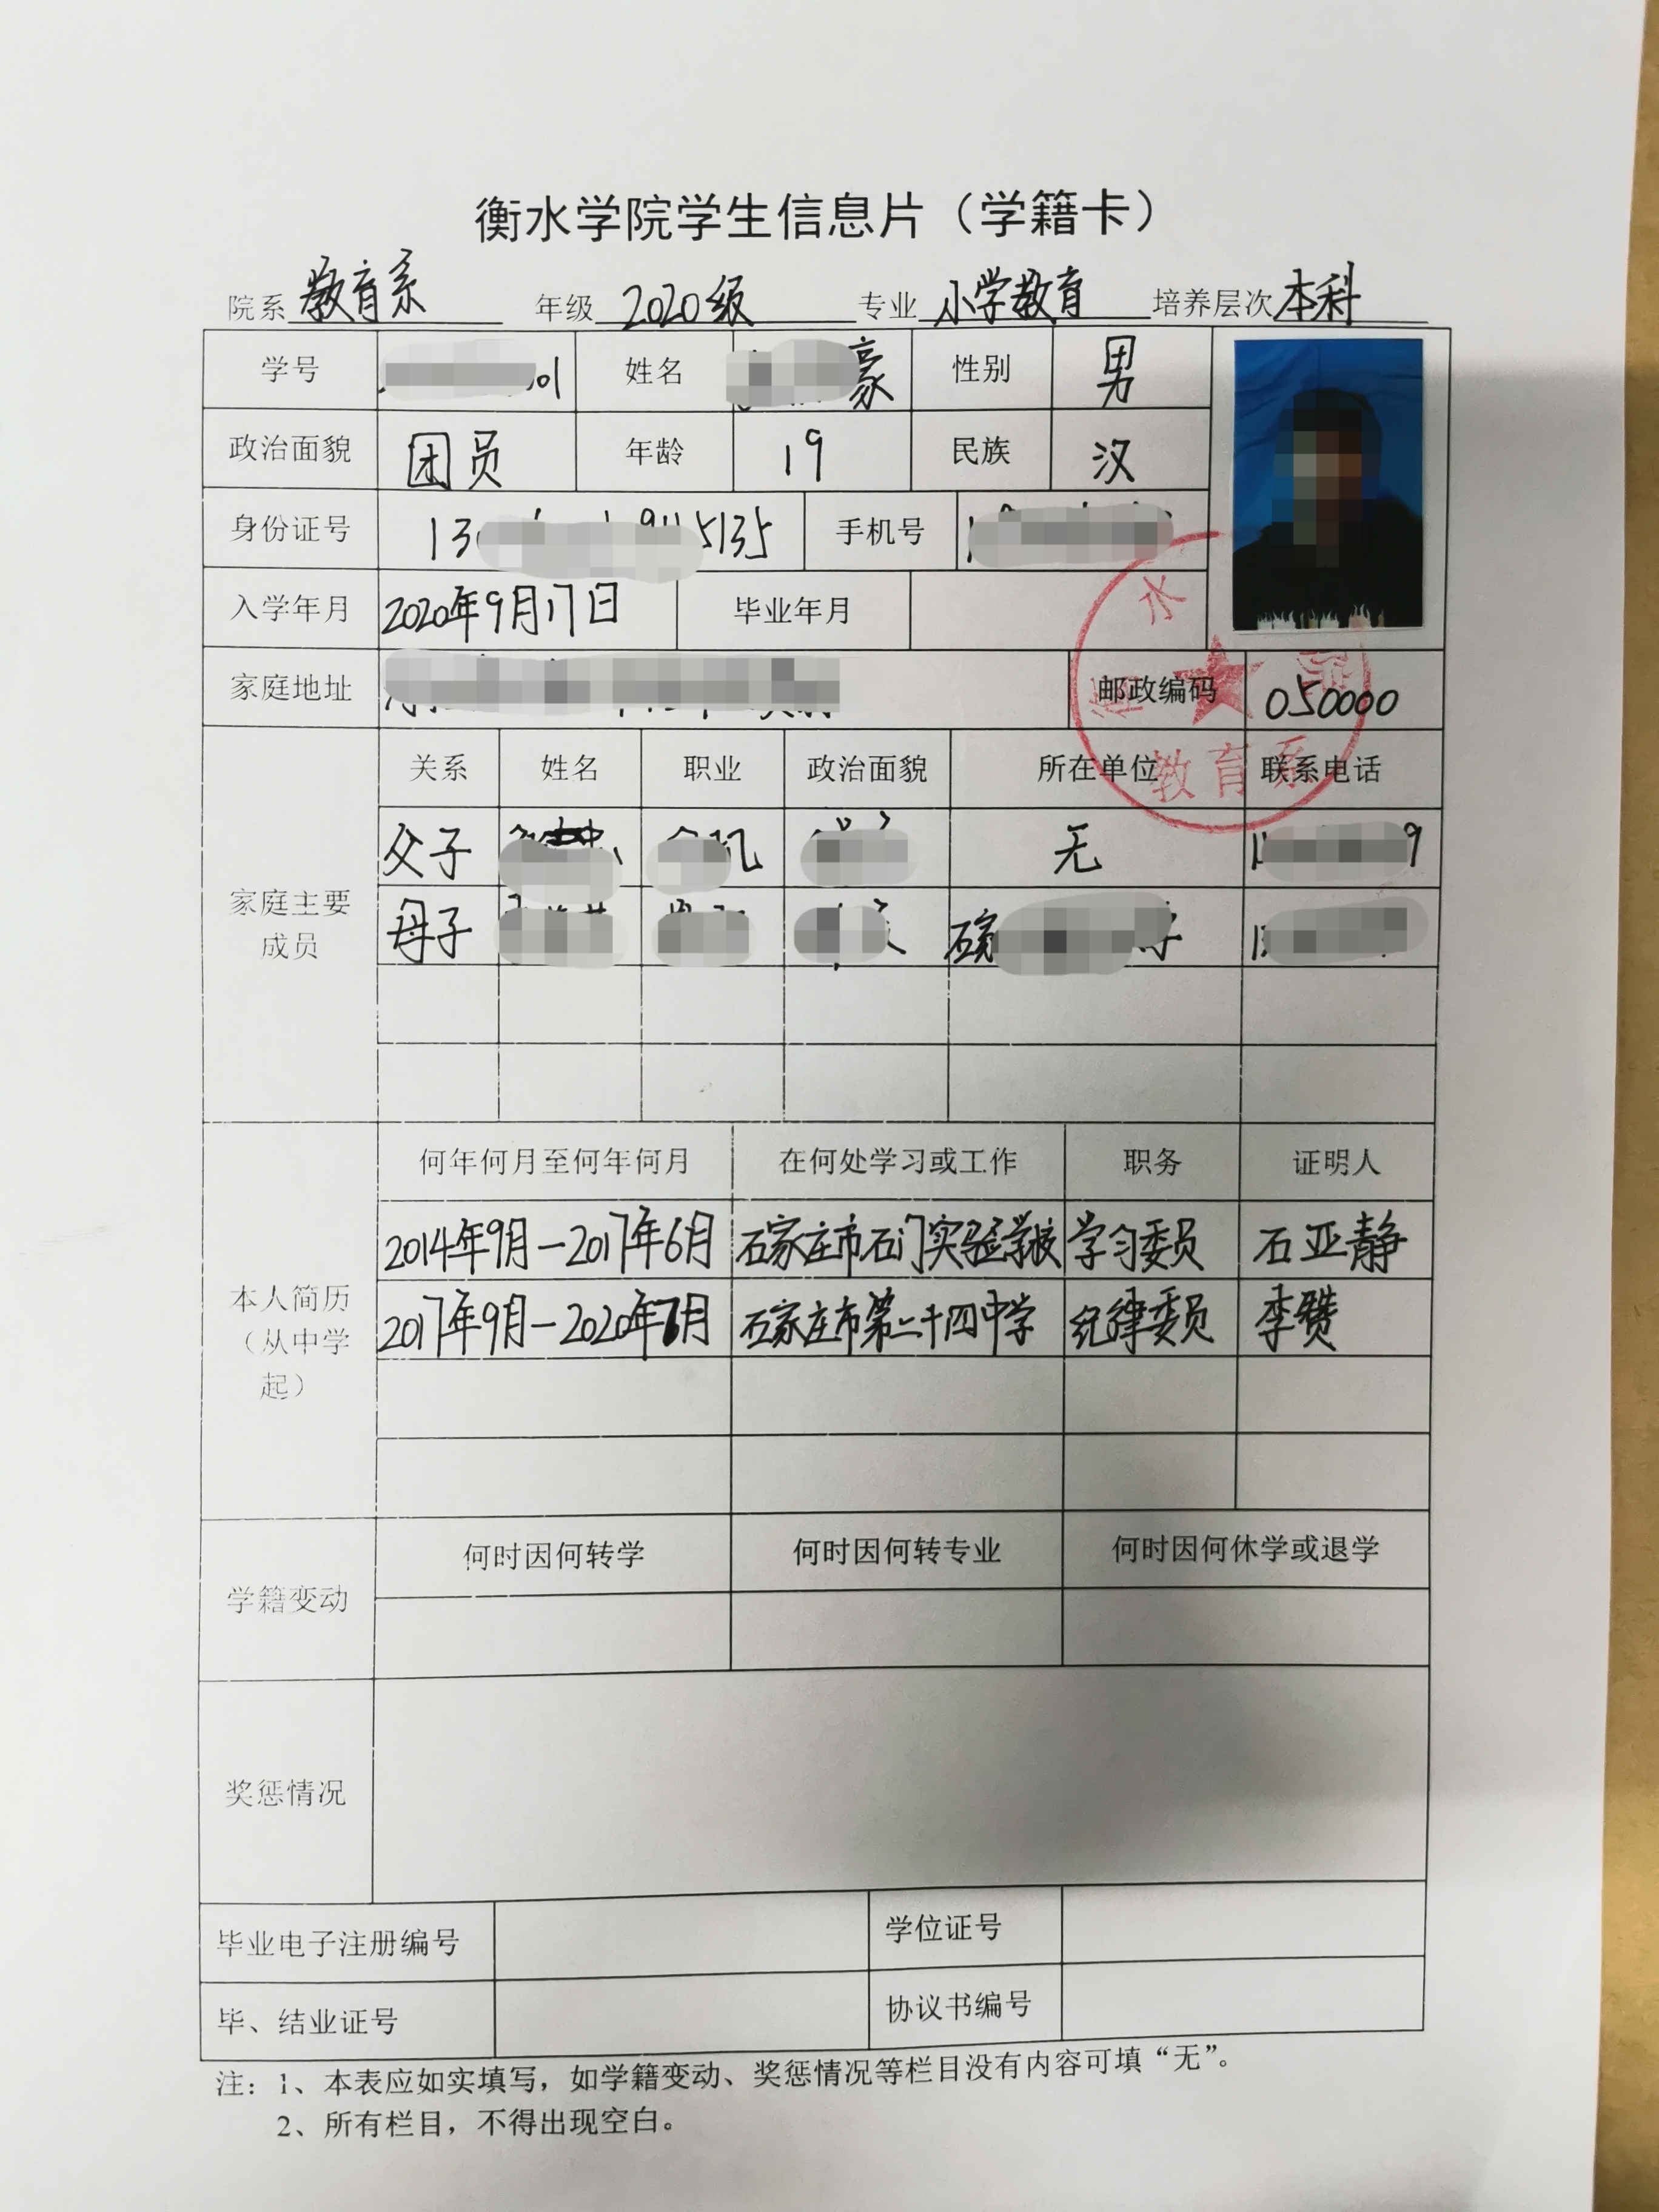 衡水学院学生信息片（学籍卡）
院系 教育系 年级 2020级 专业 小学教育 培养层次 本科
学号 01 姓名 豪 性别 男
政治面貌 团员 年龄 19 民族 汉
身份证号 13 5135 手机号
入学年月 2020年9月17日 毕业年月
家庭地址 邮政编码 050000
水
教育系
家庭主要成员
关系 姓名 职业 政治面貌 所在单位 联系电话
父子 无 9
母子
本人简历（从中学起）
何年何月至何年何月 在何处学习或工作 职务 证明人
2014年9月—2017年6月 石家庄市石门实验学校 学习委员 石亚静
2017年9月—2020年6月 石家庄市第二十四中学 纪律委员 李赞
学籍变动 何时因何转学 何时因何转专业 何时因何休学或退学
奖惩情况
毕业电子注册编号 学位证号
毕、结业证号 协议书编号
注：1、本表应如实填写，如学籍变动、奖惩情况等栏目没有内容可填“无”。
2、所有栏目，不得出现空白。